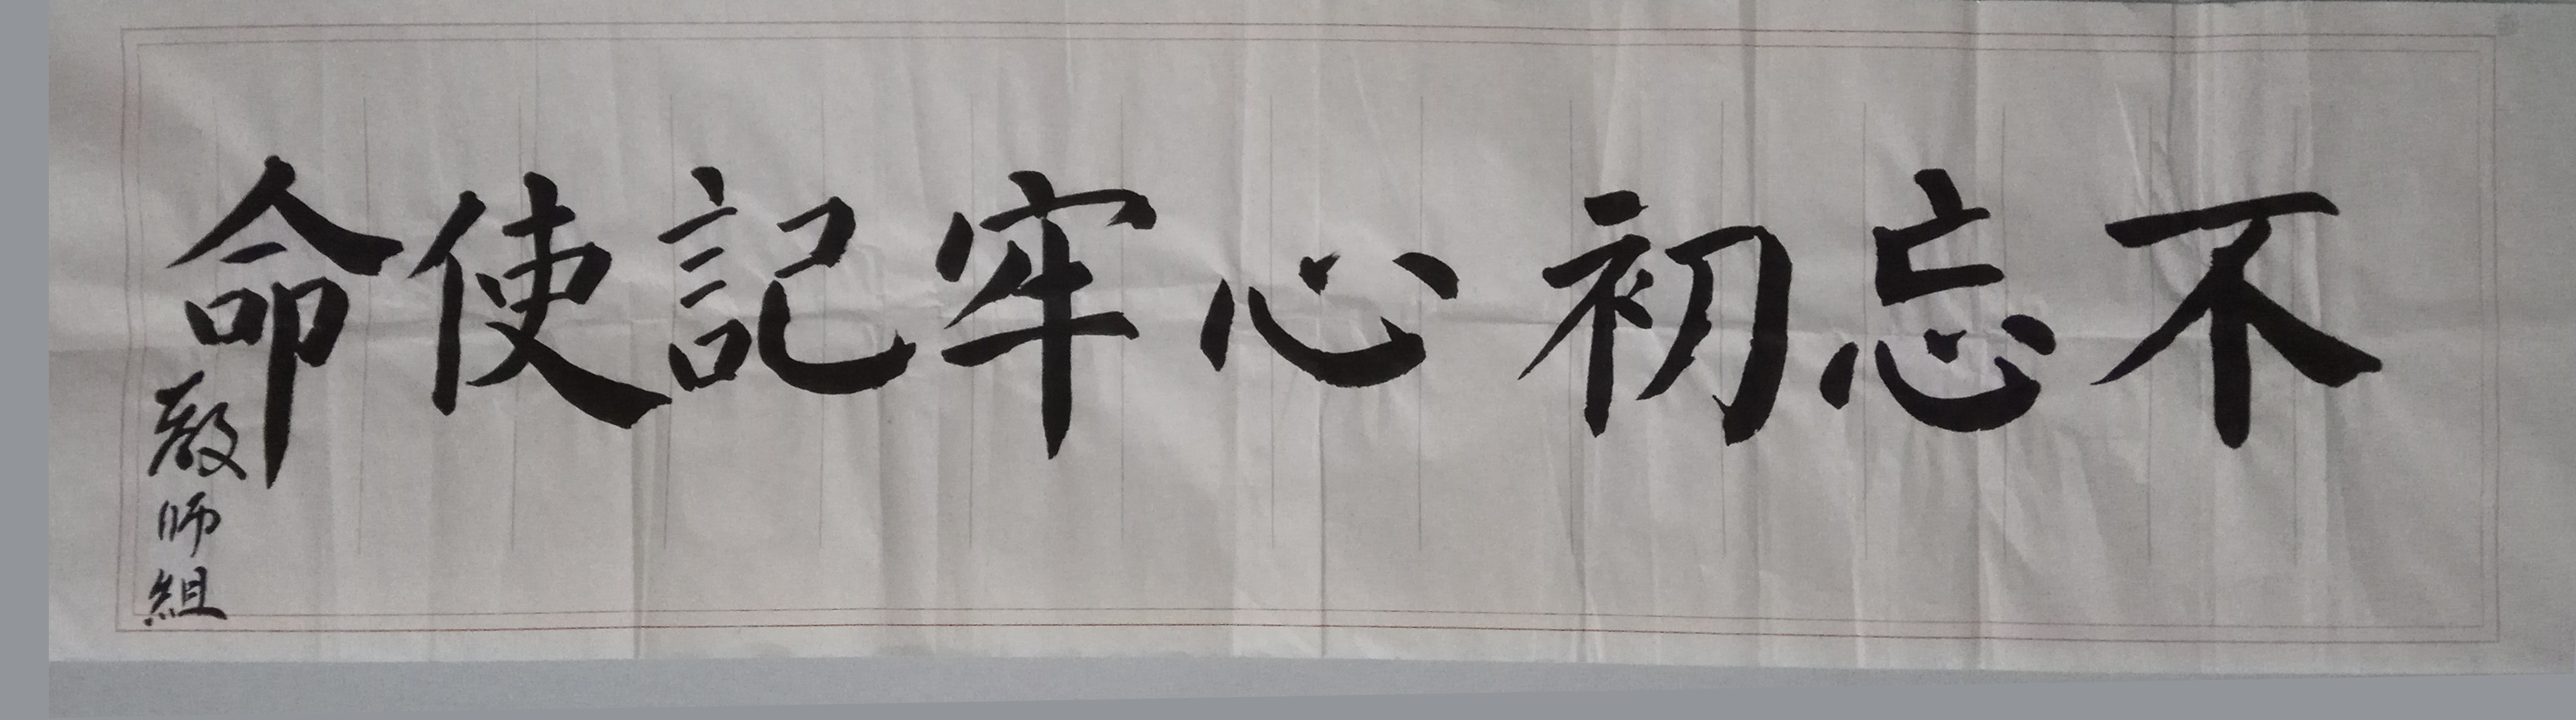 不忘初心牢記使命
教師組